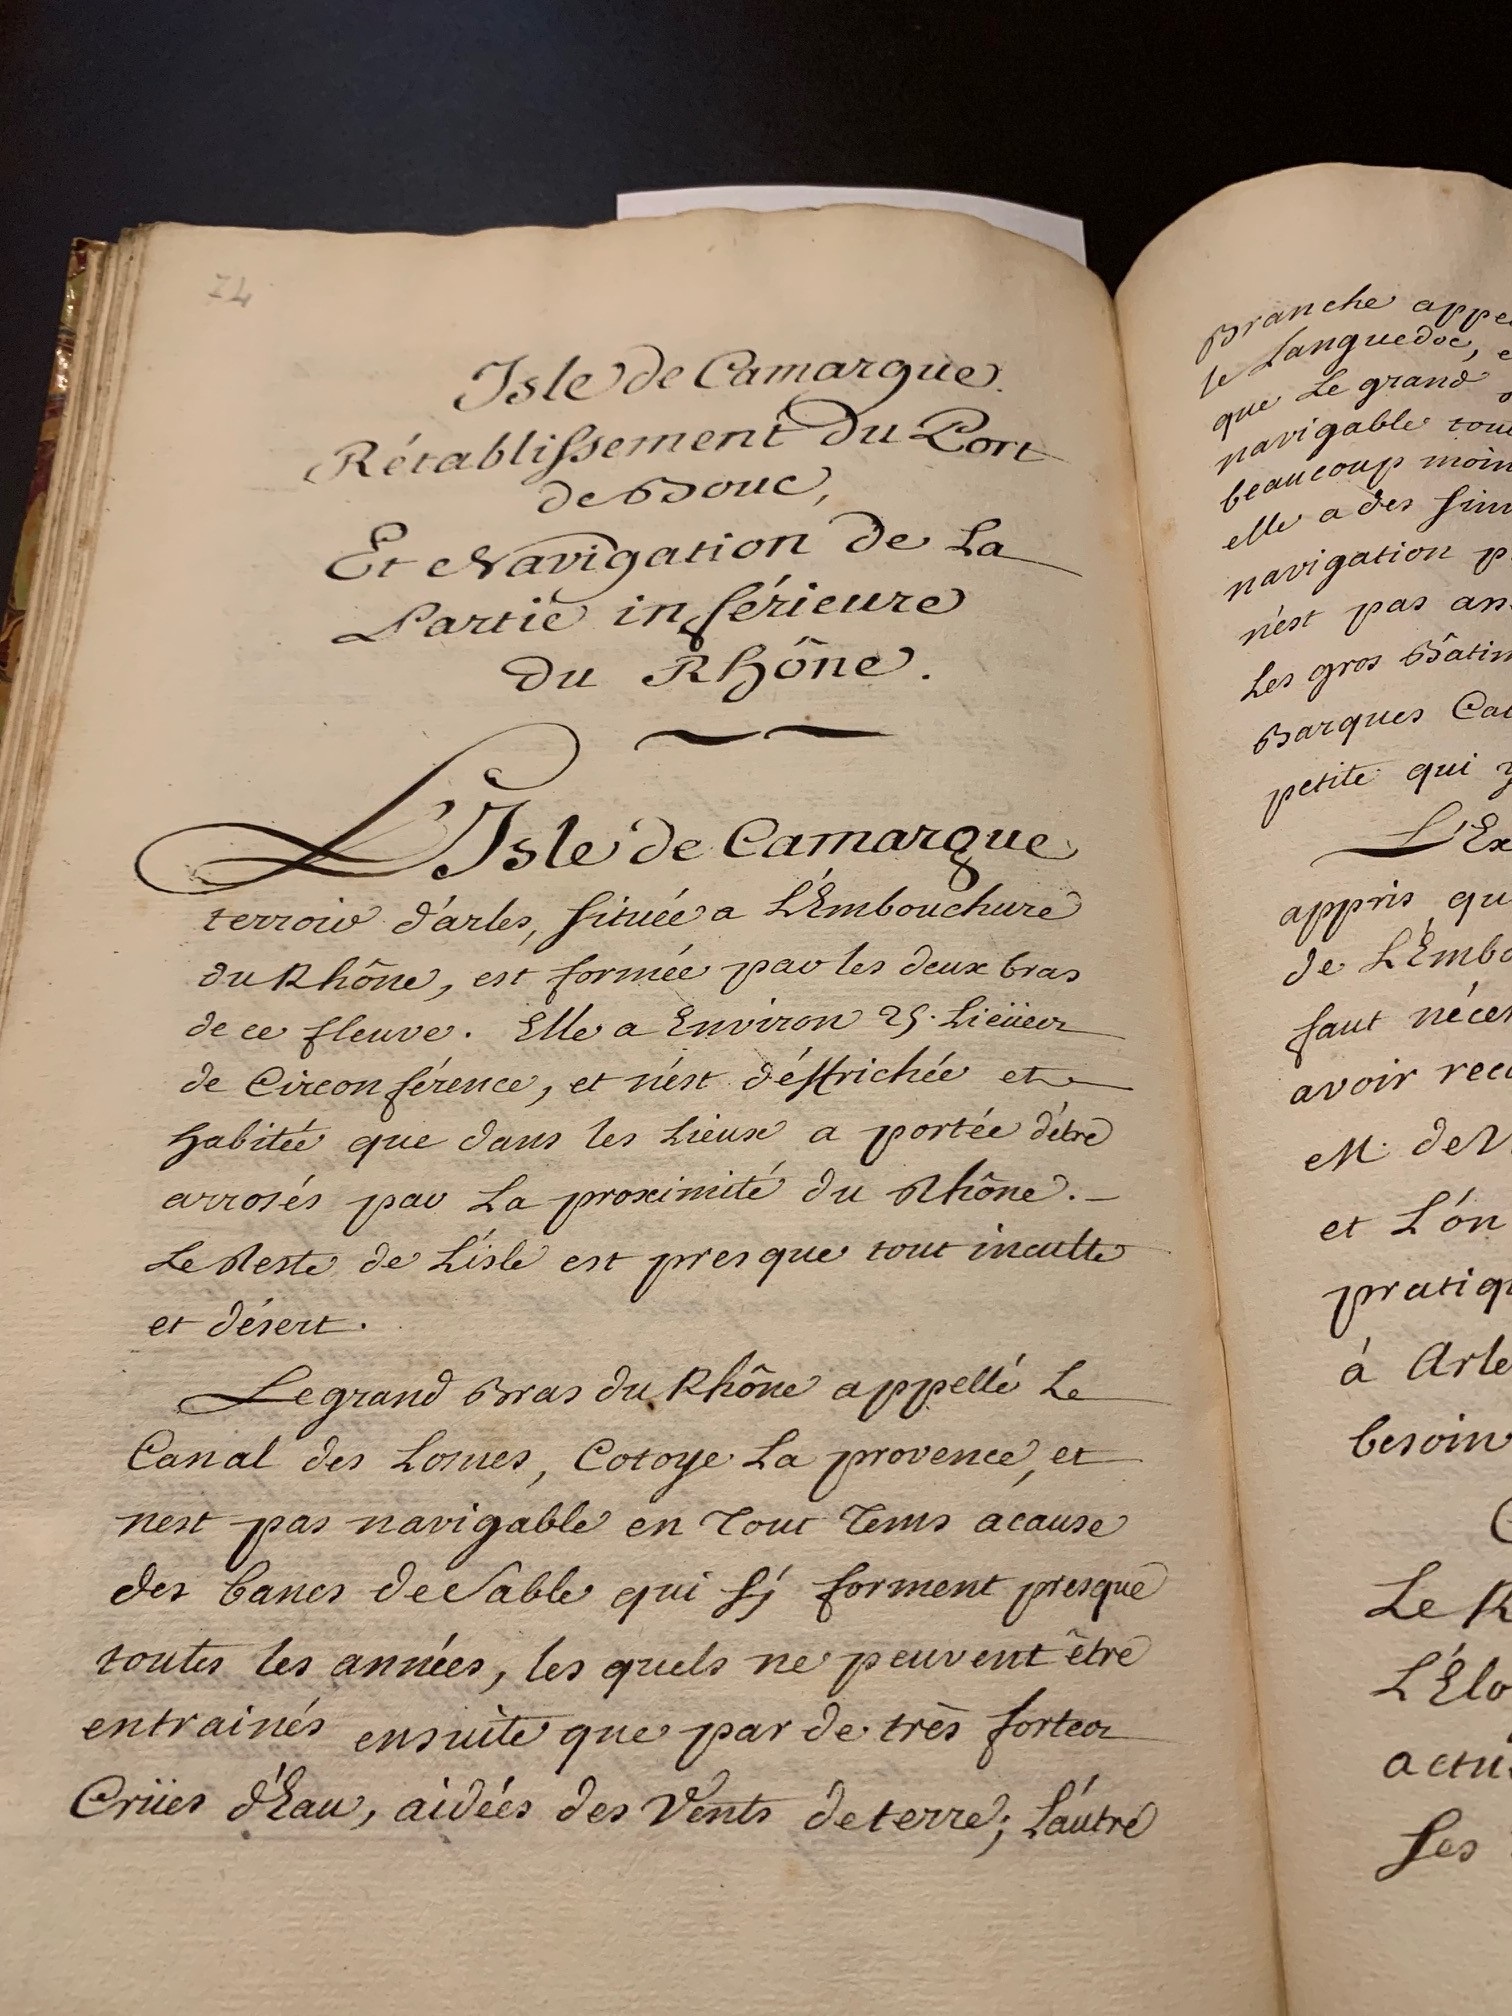 74
Isle de Camargue.
Rétablissement du Port
de Bouc,
Et Navigation de La
Partie inférieure
du Rhône.
L'Isle de Camargue
terroir d'arles, située a L'Embouchure
du Rhône, est formée par les deux bras
de ce fleuve. Elle a Environ 25. Lieües
de Circonférence, et n'est déffrichée et
habitée que dans les Lieux a portée d'être
arrosés par La proximité du Rhône.
Le Reste de L'isle est presque tout inculte
et désert.
Le grand Bras du Rhône appellé Le
Canal des Lones, Cotoye La provence, et
nest pas navigable en Tout Tems acause
des bancs de Sable qui s'y forment presque
toutes les années, les quels ne peuvent être
entrainés ensuite que par de très fortes
Crües d'Eau, aidées des Vents de terre; L'autre
Branche appe
le Languedoc, e
que Le grand
navigable tou
beaucoup moin
elle a des sinu
navigation p
n'est pas au
Les gros Bâtim
Barques Cat
petite qui y
L'Ex
appris qu
de L'Embo
faut néces
avoir reco
M. de V
et L'on
pratiqu
à Arle
besoin
Le R
L'Élo
actu
ses